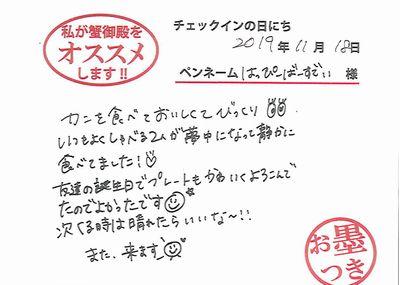 私が蟹御殿を
オススメ
します!!
チェックインの日にち
2019年11月18日
ペンネーム はっぴーばーすでい 様
カニを食べておいしくてびっくり
いつもよくしゃべる2人が夢中になって静かに
食べてました!
友達の誕生日でプレートもかわいくよろこんで
たのでよかったです
次くる時は晴れたらいいな〜!!
また、来ます
お墨
つき